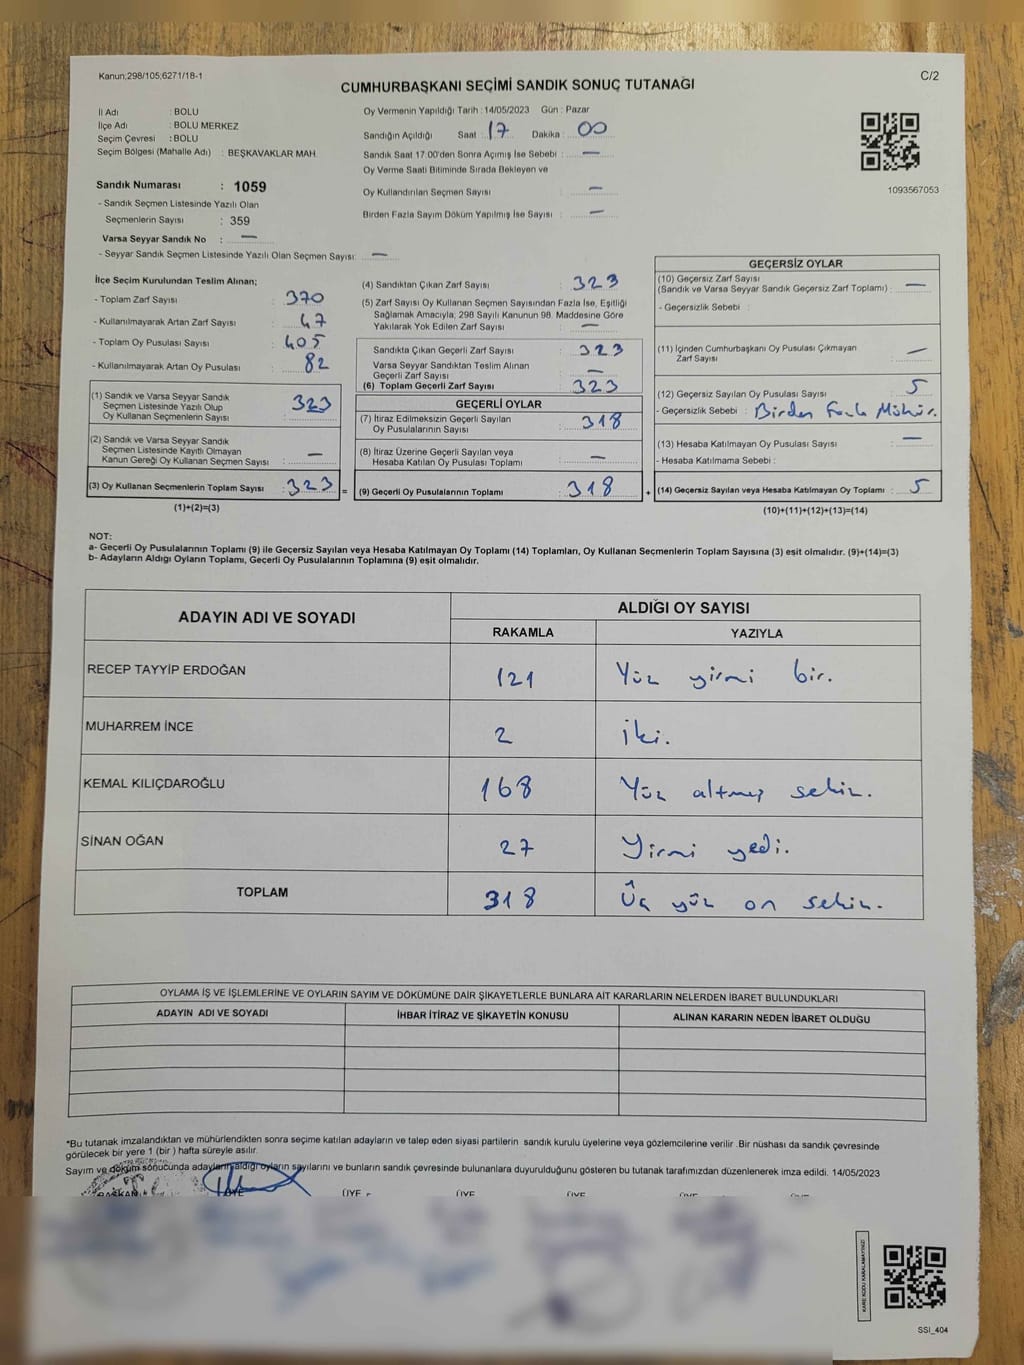 Kanun;298/105;6271/18-1
C/2
CUMHURBAŞKANI SEÇİMİ SANDIK SONUÇ TUTANAĞI
İl Adı : BOLU
İlçe Adı : BOLU MERKEZ
Seçim Çevresi : BOLU
Seçim Bölgesi (Mahalle Adı) : BEŞKAVAKLAR MAH.
Sandık Numarası : 1059
- Sandık Seçmen Listesinde Yazılı Olan
Seçmenlerin Sayısı : 359
Varsa Seyyar Sandık No : —
- Seyyar Sandık Seçmen Listesinde Yazılı Olan Seçmen Sayısı: —
Oy Vermenin Yapıldığı Tarih : 14/05/2023 Gün : Pazar
Sandığın Açıldığı Saat : 17 Dakika : 00
Sandık Saat 17.00'den Sonra Açımış İse Sebebi : —
Oy Verme Saati Bitiminde Sırada Bekleyen ve
Oy Kullandırılan Seçmen Sayısı —
Birden Fazla Sayım Döküm Yapılmış İse Sayısı : —
1093567053
İlçe Seçim Kurulundan Teslim Alınan;
- Toplam Zarf Sayısı : 370
- Kullanılmayarak Artan Zarf Sayısı : 47
- Toplam Oy Pusulası Sayısı : 405
- Kullanılmayarak Artan Oy Pusulası : 82
(1) Sandık ve Varsa Seyyar Sandık
Seçmen Listesinde Yazılı Olup
Oy Kullanan Seçmenlerin Sayısı : 323
(2) Sandık ve Varsa Seyyar Sandık
Seçmen Listesinde Kayıtlı Olmayan
Kanun Gereği Oy Kullanan Seçmen Sayısı : —
(3) Oy Kullanan Seçmenlerin Toplam Sayısı : 323 =
(1)+(2)=(3)
(4) Sandıktan Çıkan Zarf Sayısı : 323
(5) Zarf Sayısı Oy Kullanan Seçmen Sayısından Fazla İse, Eşitliği
Sağlamak Amacıyla; 298 Sayılı Kanunun 98. Maddesine Göre
Yakılarak Yok Edilen Zarf Sayısı : —
Sandıkta Çıkan Geçerli Zarf Sayısı : 323
Varsa Seyyar Sandıktan Teslim Alınan
Geçerli Zarf Sayısı : —
(6) Toplam Geçerli Zarf Sayısı : 323
GEÇERLİ OYLAR
(7) İtiraz Edilmeksizin Geçerli Sayılan
Oy Pusulalarının Sayısı : 318
(8) İtiraz Üzerine Geçerli Sayılan veya
Hesaba Katılan Oy Pusulası Toplamı : —
(9) Geçerli Oy Pusulalarının Toplamı : 318 +
GEÇERSİZ OYLAR
(10) Geçersiz Zarf Sayısı
(Sandık ve Varsa Seyyar Sandık Geçersiz Zarf Toplamı) : —
- Geçersizlik Sebebi :
(11) İçinden Cumhurbaşkanı Oy Pusulası Çıkmayan
Zarf Sayısı : —
(12) Geçersiz Sayılan Oy Pusulası Sayısı : 5
- Geçersizlik Sebebi : Birden Fazla Mühür.
(13) Hesaba Katılmayan Oy Pusulası Sayısı : —
- Hesaba Katılmama Sebebi :
(14) Geçersiz Sayılan veya Hesaba Katılmayan Oy Toplamı : 5
(10)+(11)+(12)+(13)=(14)
NOT:
a- Geçerli Oy Pusulalarının Toplamı (9) ile Geçersiz Sayılan veya Hesaba Katılmayan Oy Toplamı (14) Toplamları, Oy Kullanan Seçmenlerin Toplam Sayısına (3) eşit olmalıdır. (9)+(14)=(3)
b- Adayların Aldığı Oyların Toplamı, Geçerli Oy Pusulalarının Toplamına (9) eşit olmalıdır.
ADAYIN ADI VE SOYADI ALDIĞI OY SAYISI
RAKAMLA YAZIYLA
RECEP TAYYİP ERDOĞAN 121 Yüz yirmi bir.
MUHARREM İNCE 2 iki.
KEMAL KILIÇDAROĞLU 168 Yüz altmış sekiz.
SİNAN OĞAN 27 Yirmi yedi.
TOPLAM 318 Üç yüz on sekiz.
OYLAMA İŞ VE İŞLEMLERİNE VE OYLARIN SAYIM VE DÖKÜMÜNE DAİR ŞİKAYETLERLE BUNLARA AİT KARARLARIN NELERDEN İBARET BULUNDUKLARI
ADAYIN ADI VE SOYADI İHBAR İTİRAZ VE ŞİKAYETİN KONUSU ALINAN KARARIN NEDEN İBARET OLDUĞU
*Bu tutanak imzalandıktan ve mühürlendikten sonra seçime katılan adayların ve talep eden siyasi partilerin sandık kurulu üyelerine veya gözlemcilerine verilir .Bir nüshası da sandık çevresinde
görülecek bir yere 1 (bir ) hafta süreyle asılır.
Sayım ve döküm sonucunda adayların aldığı oyların sayılarını ve bunların sandık çevresinde bulunanlara duyurulduğunu gösteren bu tutanak tarafımızdan düzenlenerek imza edildi. 14/05/2023
BAŞKAN ÜYE ÜYE ÜYE ÜYE ÜYE
KARE KODU KARALAMAYINIZ!
SSI_404